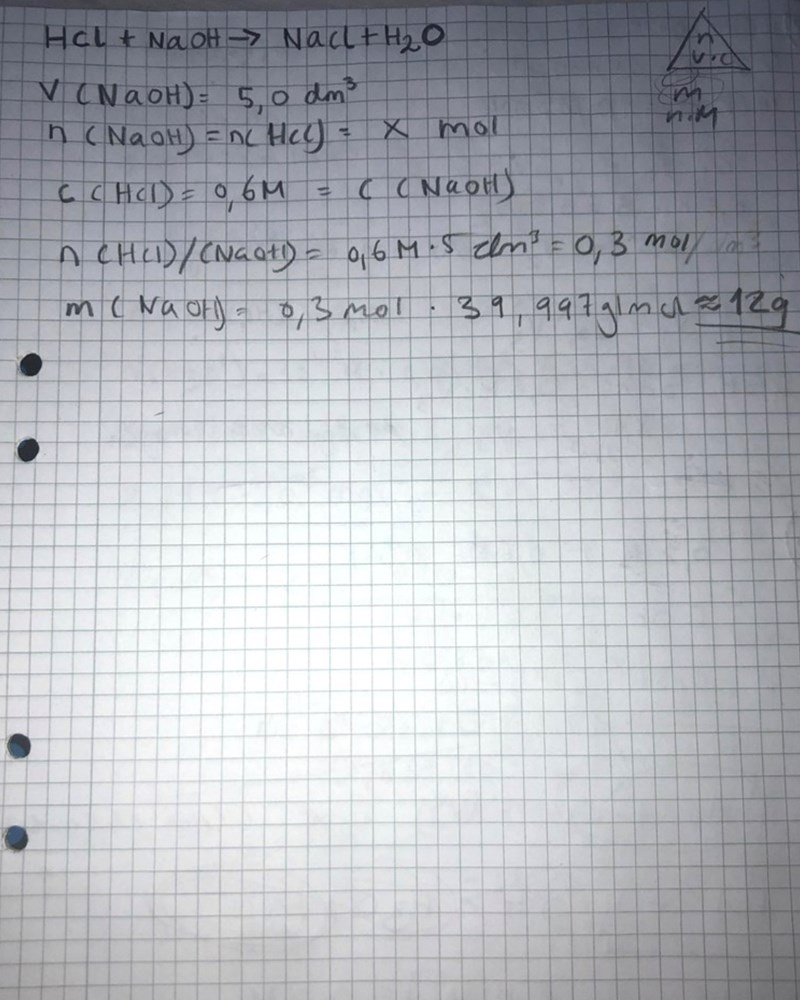 HCl + NaOH → NaCl + H₂O
n
v·c
V (NaOH) = 5,0 dm³
m
n·M
n (NaOH) = n(HCl) = x mol
c (HCl) = 0,6M = c (NaOH)
n (HCl)/(NaOH) = 0,6 M · 5 dm³ = 0,3 mol/
m (NaOH) = 0,3 mol · 39,997g/mol ≈ 12g